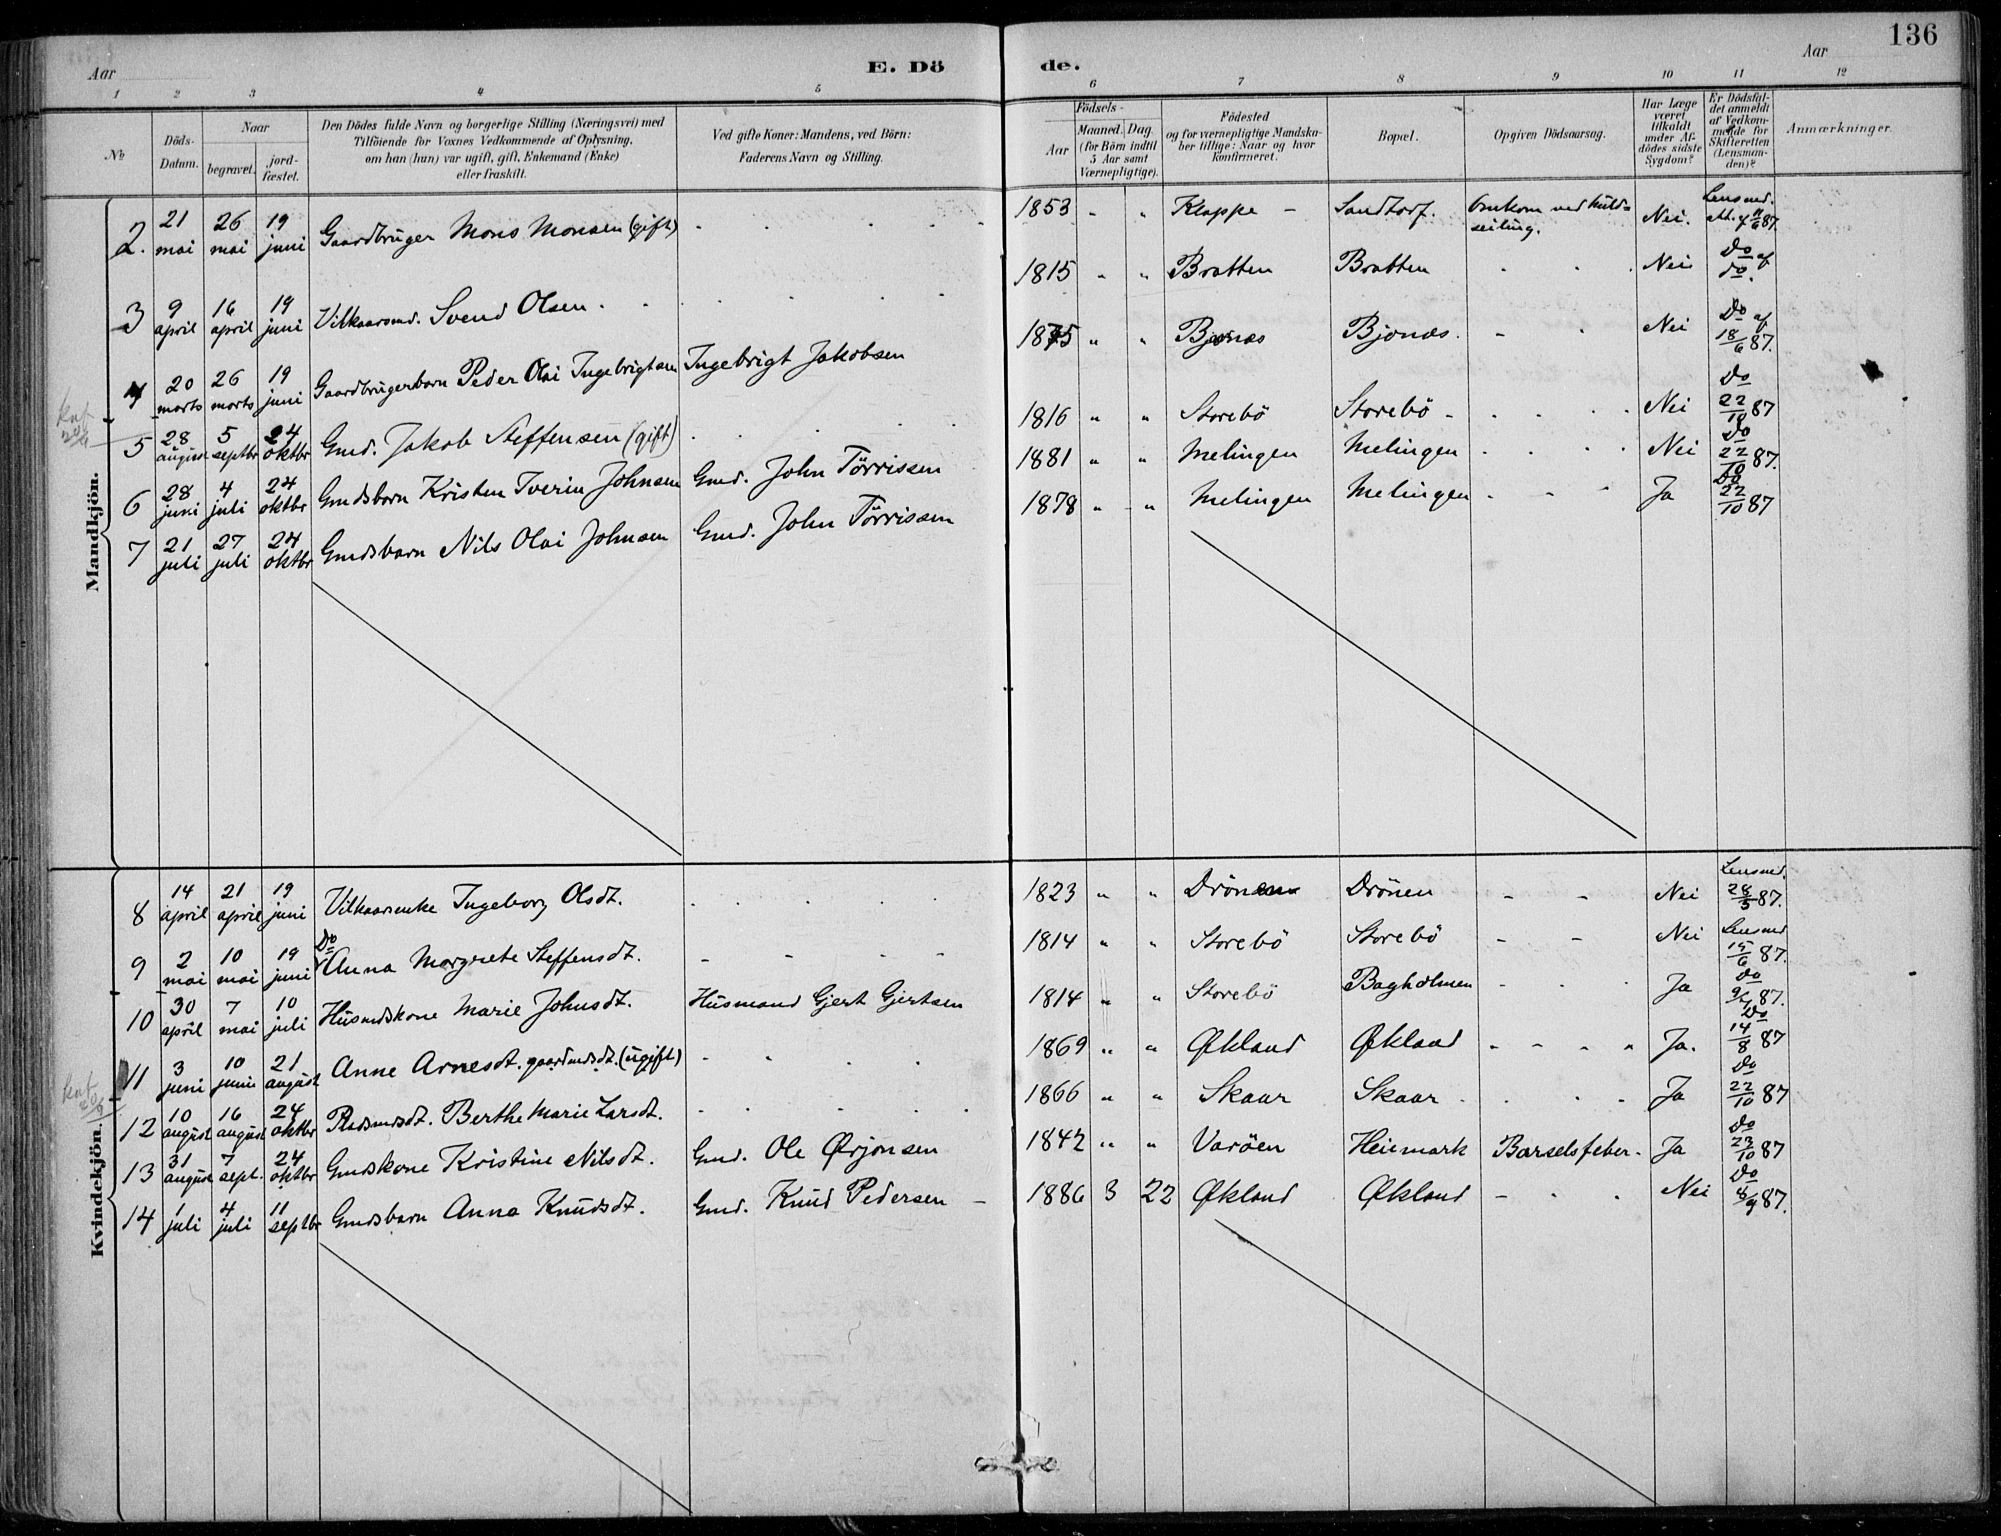 136
Aar
E. Dö
de.
Aar
1 2 3 4 5 6 7 8 9 10 11 12
№
Döds-
Datum.
Naar
begravet.
jord-
fæstet.
Den Dödes fulde Navn og borgerlige Stilling (Næringsvei) med
Tilföiende for Voxnes Vedkommende af Oplysning,
om han (hun) var ugift, gift, Enkemand (Enke)
eller fraskilt.
Ved gifte Koner: Mandens, ved Börn:
Faderens Navn og Stilling.
Födsels-
Aar
Maaned. Dag.
(for Börn indtil
5 Aar samt
Værnepligtige).
Födested
og for værnepligtige Mandska-
ber tillige: Naar og hvor
konfirmeret.
Bopæl.
Opgiven Dödsaarsag.
Har Læge
været
tilkaldt
under Af-
dödes sidste
Sygdom?
Er Dödsfal-
det anmeldt
af Vedkom-
mende for
Skifteretten
(Lensman-
den)?
Anmærkninger.
Mandkjön.
2. 21 mai 26 mai 19 juni Gaardbruger Mons Monsen (gift) 1853 " " Kloppe - Sandtorf. Omkom ved kuld= seiling. Nei. Lensmd. att. 87.
3 9 april 16 april 19 juni Vilkaarsmd. Svend Olsen. 1815 " " Bratten Bratten Nei Do af do.
4 20 marts 26 marts 19 juni Gaardbrugerbarn Peder Olai Ingebrigtsen Ingebrigt Jakobsen 1875 " " Bjonæs Bjonæs. - Nei Do af 18/6 87.
5 28 august 5 septbr 24 oktbr Gmd. Jakob Steffensen (gift) 1816 " " Storebö Storebö - Nei Do 22/10 87
6 28 juni 4 juli 24 oktbr Gmdsbarn Kristen Iverin Johnsen Gmd. John Törrisen 1881 " " Melingen Melingen Nei Do 22/10 87.
7 21 juli 27 juli 24 oktbr Gmdsbarn Nils Olai Johnsen Gmd. John Törrisen 1878 " " Melingen Melingen Ja Do 22/10 87
Kvindekjön.
8 14 april 21 april 19 juni Vilkaarsenke Ingeborg Olsdt. 1823 " " Drönen Drönen - - Nei Lensmd. 28/5 87.
9 2 mai 10 mai 19 juni Do Anna Margrete Steffensdt. - - - - 1814 " " Storebö Storebö - - Nei Lensmd 15/6 87.
10 30 april 7 mai 10 juli Husmdskone Marie Johnsdt. Husmand Gjert Gjertsen 1814 " " Storebö Bagholmen - Ja Do 87.
11 3 juni 10 juni 21 august Anne Arnesdt. gaardmdsdt. (ugift) 1869 " " Økland Økland Ja. Do 14/8 87
12 10 august 16 august 24 oktbr Berthe Marie Larsdt. 1866 " " Skaar Skaar Ja Do 22/10 87
13 31 august 7 sept. 24 oktbr Gmdskone Kristine Nilsdt. Gmd. Ole Ørjonsen 1842 " " Varöen Heiemark Barselsfeber - Ja Do 23/10 87
14 1 juli 4 juli 11 septbr Gmdsbarn Anna Knudsdt. Gmd. Knud Pedersen - 1886 3 22 Økland Økland - Nei Do 4/9 87.